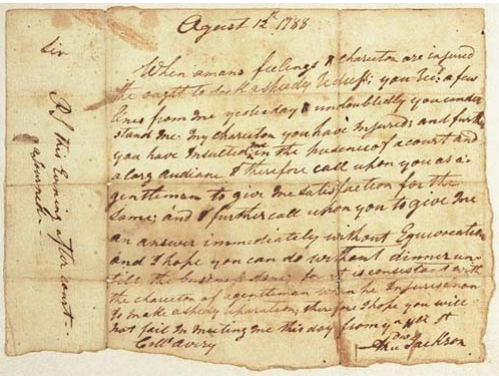 Agust 12th 1788
Sir
When amans feelings & charector are injured
he ought to seek aspeedy redress; you recd a few
lines from me yesterday & undoubtedly you under
stand me My charector you have Injured; and further
you have Insulted me in the presence of a court and
a larg audiane I therefore call upon you as a
gentleman to give me satisfaction for the
Same; and I further call upon you to give Me
an answer immediately without Equivocation
and I hope you can do without dinner un
till the business done; for it is consistant with
the charector of agentleman when he Injures aman
to make aspedy reparation; therefore I hope you will
not fail in meeting me this day from yr Hbl st
Collo Avery
Andw Jackson
P.S This Evening after court